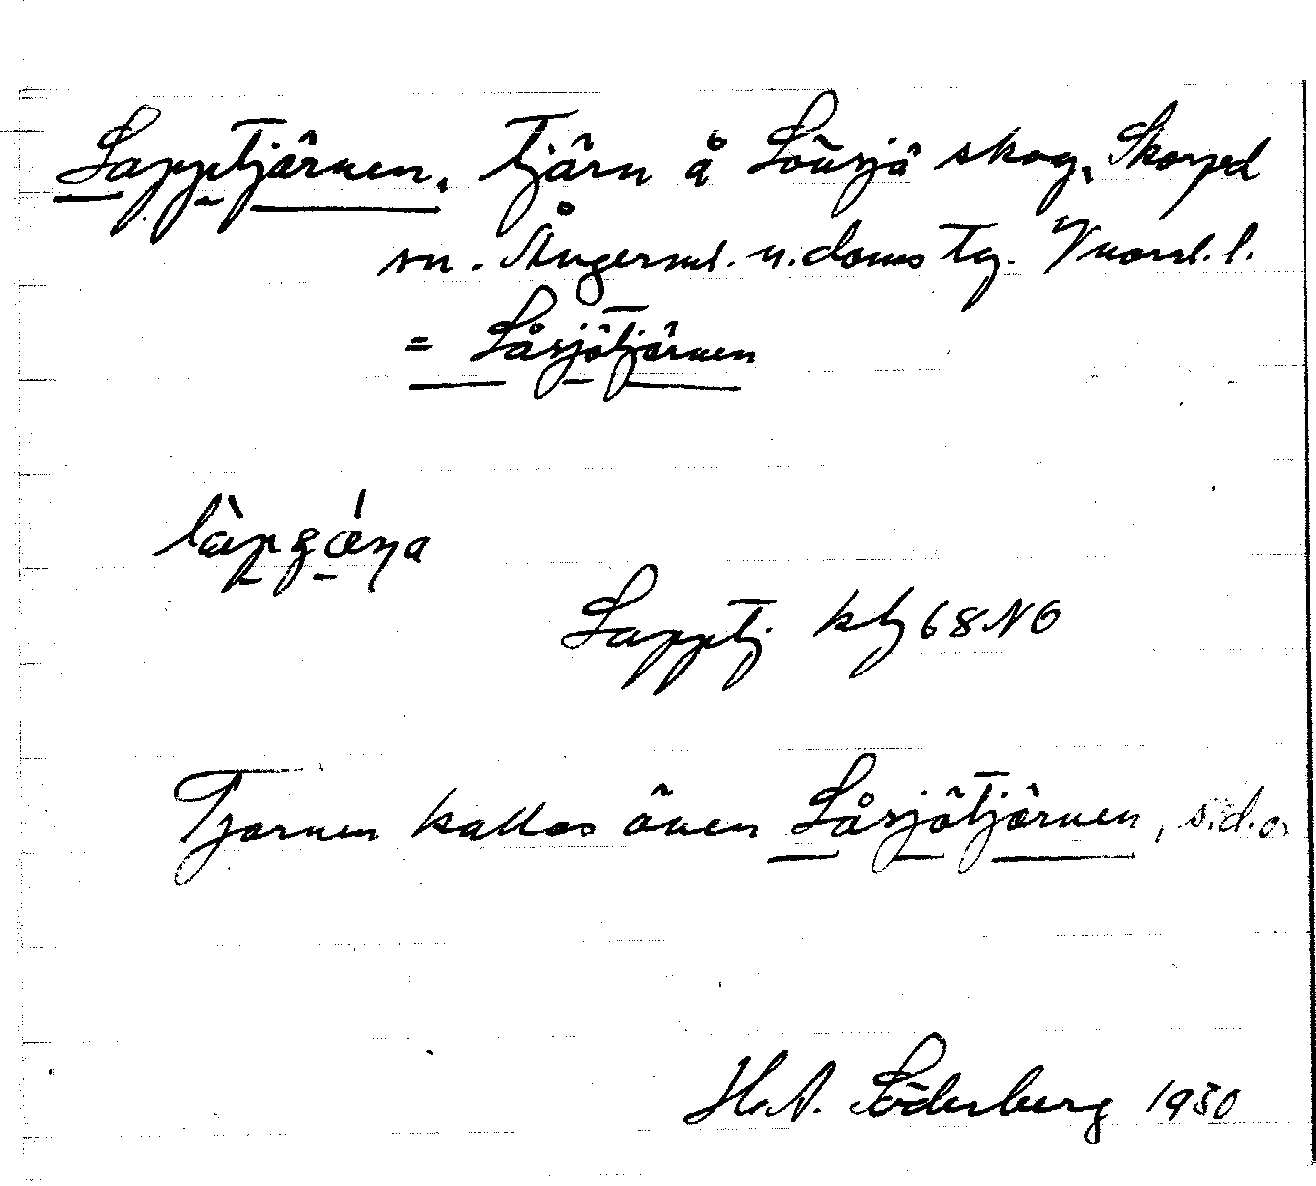 Lapptjärnen, tjärn å Lövsjö skog, Skorped
sn. Ångerml. n. doms tg. Vnorrl. l.
= Låsjötjärnen
Lapptj. kbl 68 NO
Tjärnen kallas även Låsjötjärnen, s.d.o.
H.A. Söderberg 1930